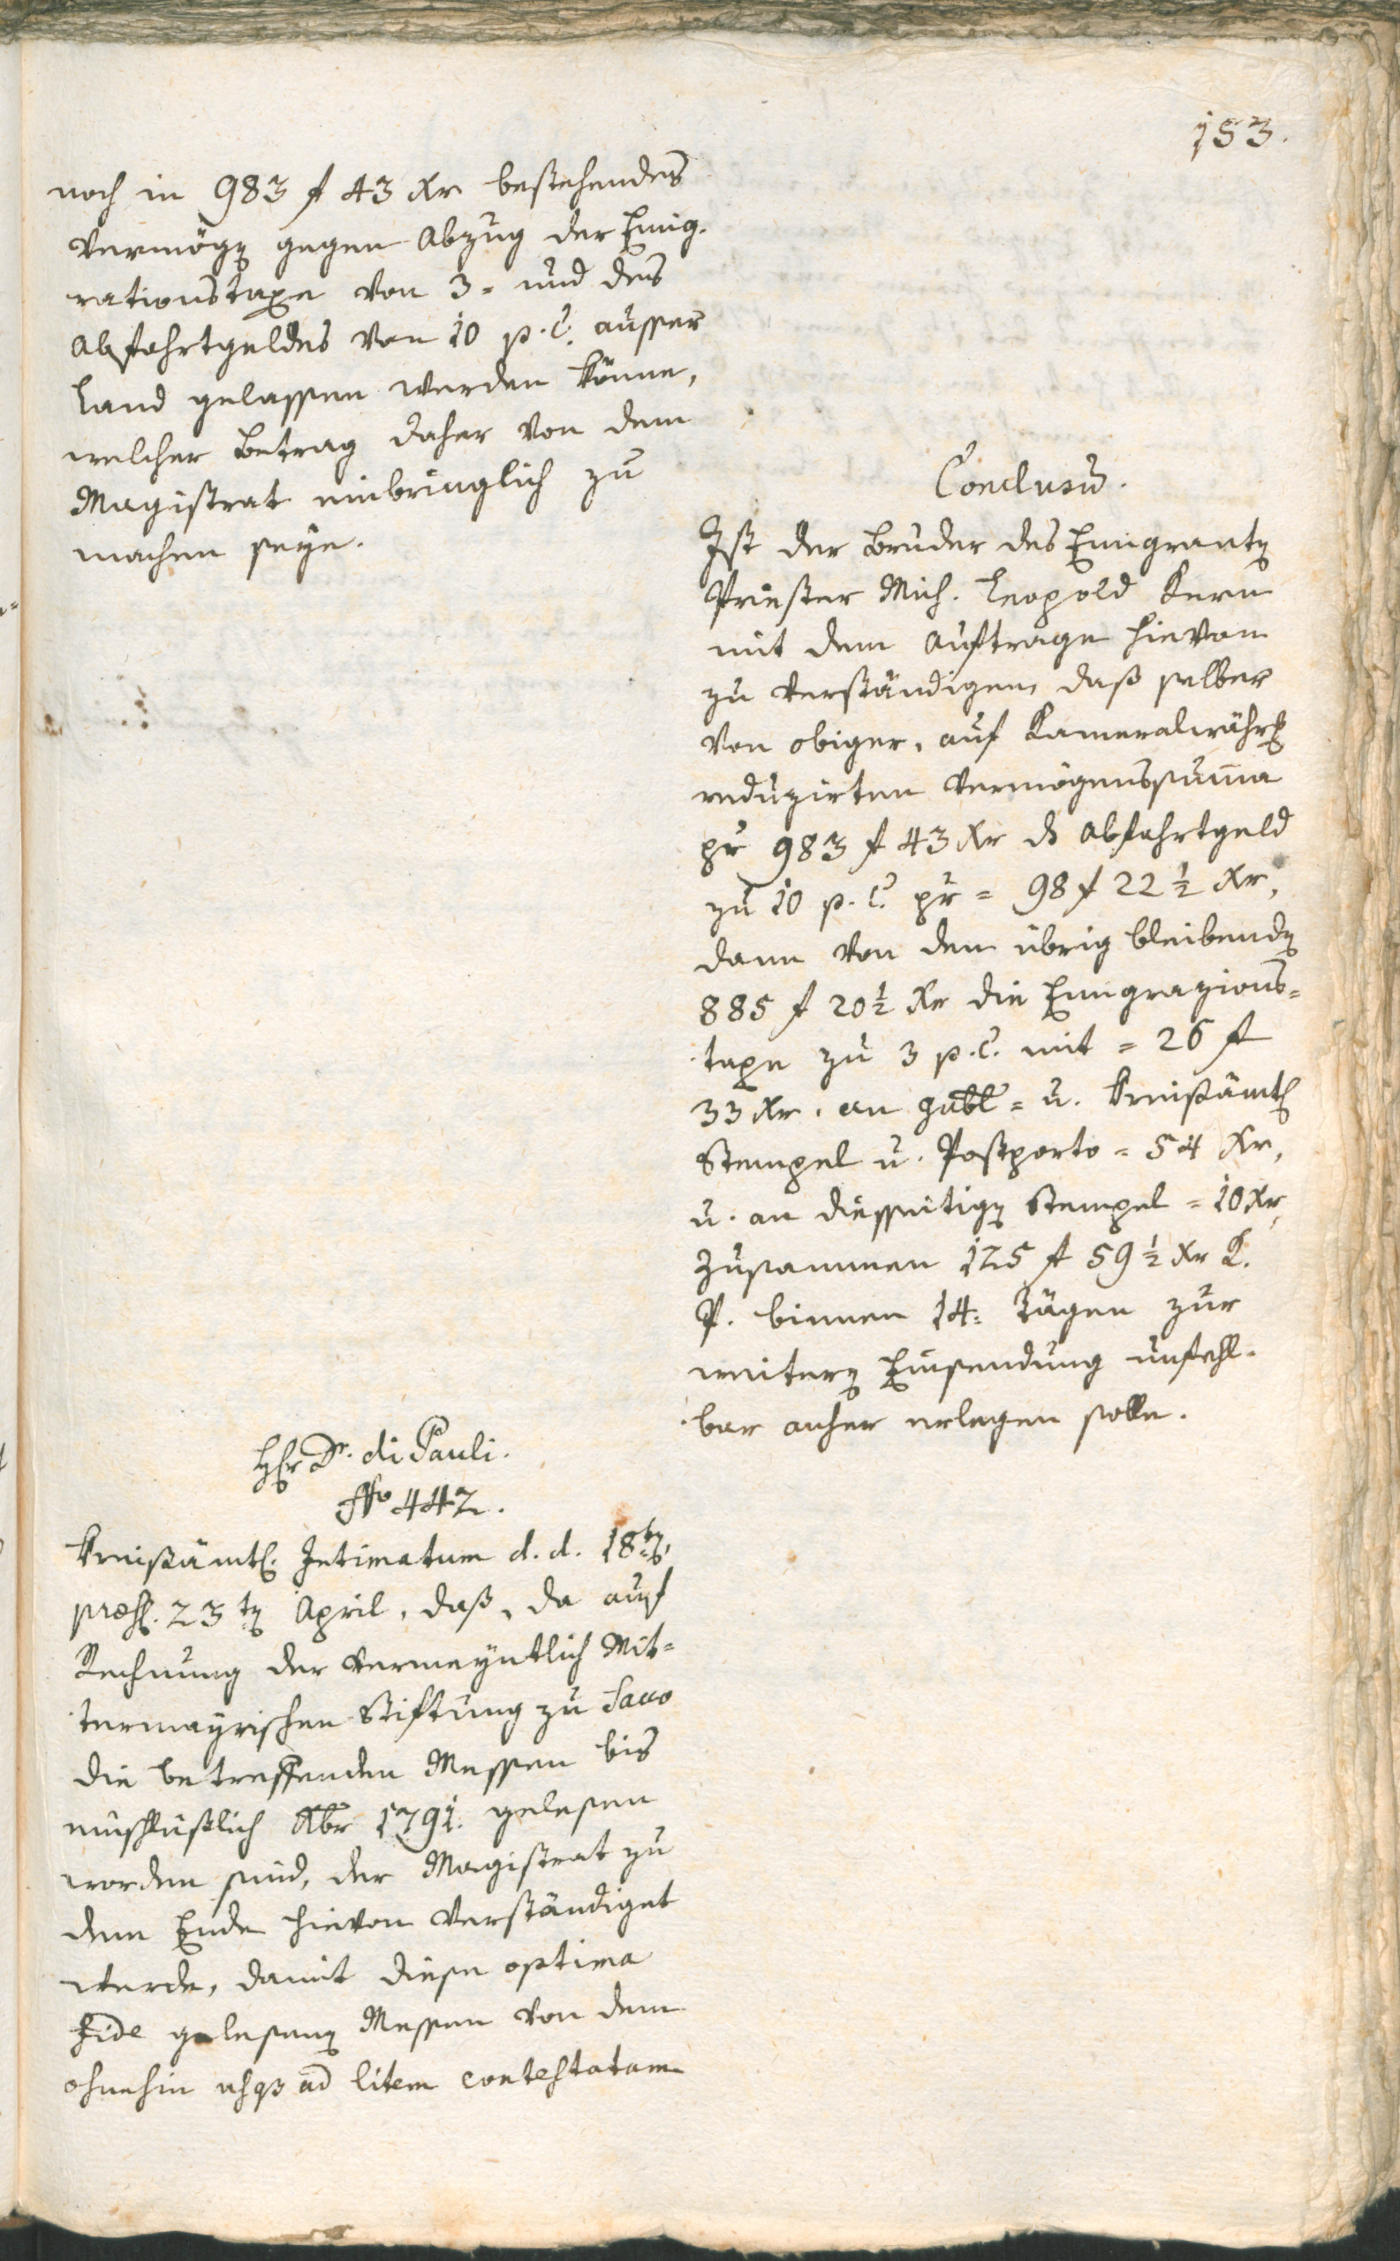 153.
noch in 983 f 43 Xr bestehendes
Vermögen gegen Abzug der Emig-
rationstaxe von 3= und des
Abfahrtgeldes von 10 p. C. ausser
Land gelassen werden könne,
welcher Betrag daher von dem
Magistrat einbringlich zu
machen seye.
Conclusū.
Ist der Bruder des Emigranten
Priester Mich. Leopold Kern
mit dem Auftrage hievon
zu verständigen, daß selber
von obiger, auf Kameralwähr.
reduzirten Vermögenssum̄a
pr 983 f 43 Xr ds Abfahrtgeld
zu 10 p. C. pr = 98 f 22 1/2 Xr,
dann von den übrig bleibenden
885 f 20 1/2 Xr die Emigrazions=
taxe zu 3 p. C. mit = 26 f
33 Xr. an gubl = u. Kreißämtl.
Stempel u. Postporto = 54 Xr,
u. an diesseitigen Stempel = 10 Xr,
Zusammen 125 f 59 1/2 Xr K.
W. binnen 14. Tägen zur
weitern Einsendung unfehl-
bar anher erlegen solle.
Hr Dr. di Pauli.
No 442.
Kreißämtl. Intimatum d. d. 18ten,
præs. 23ten April, daß, da auf
Rechnung der vermeyntlich Mit=
termayrischen Stiftung zu Sacco
die betreffenden Messen bis
einschlüßlich Xbr 1791. gelesen
worden sind, der Magistrat zu
dem Ende hievon verständiget
werde, damit diese optima
Fide gelesenen Messen von dem
ohnehin usq3 ad litem contestatam